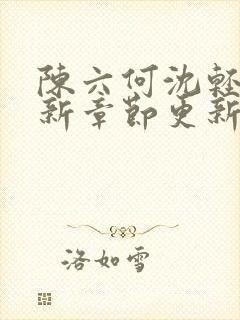 陳六何沈輕
新章節更新
洛如雪